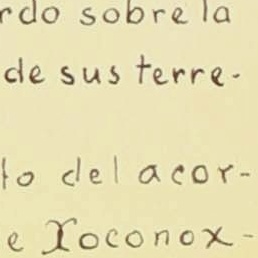 rdo sobre la
de sus terre-
to del acor-
e Xoconox-